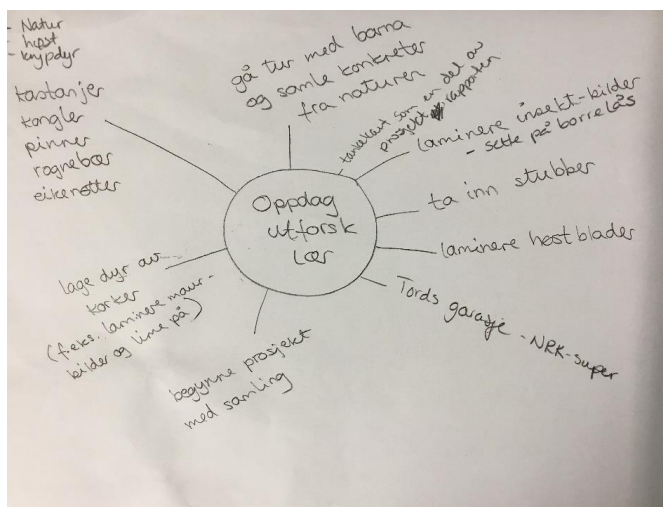 - Natur
- høst
- krypdyr
kastanjer
kongler
pinner
rognebær
eikenøtter
gå tur med barna
og samle konkreter
fra naturen
tankekart som en del av
prosjektrapporten
laminere insekt-bilder
- sette på borrelås
ta inn stubber
laminere høstblader
Tords garasje - NRK-super
begynne prosjekt
med samling
lage dyr av
korker
(f.eks. laminere maur-
bilder og lime på)
Oppdag
utforsk
Lær